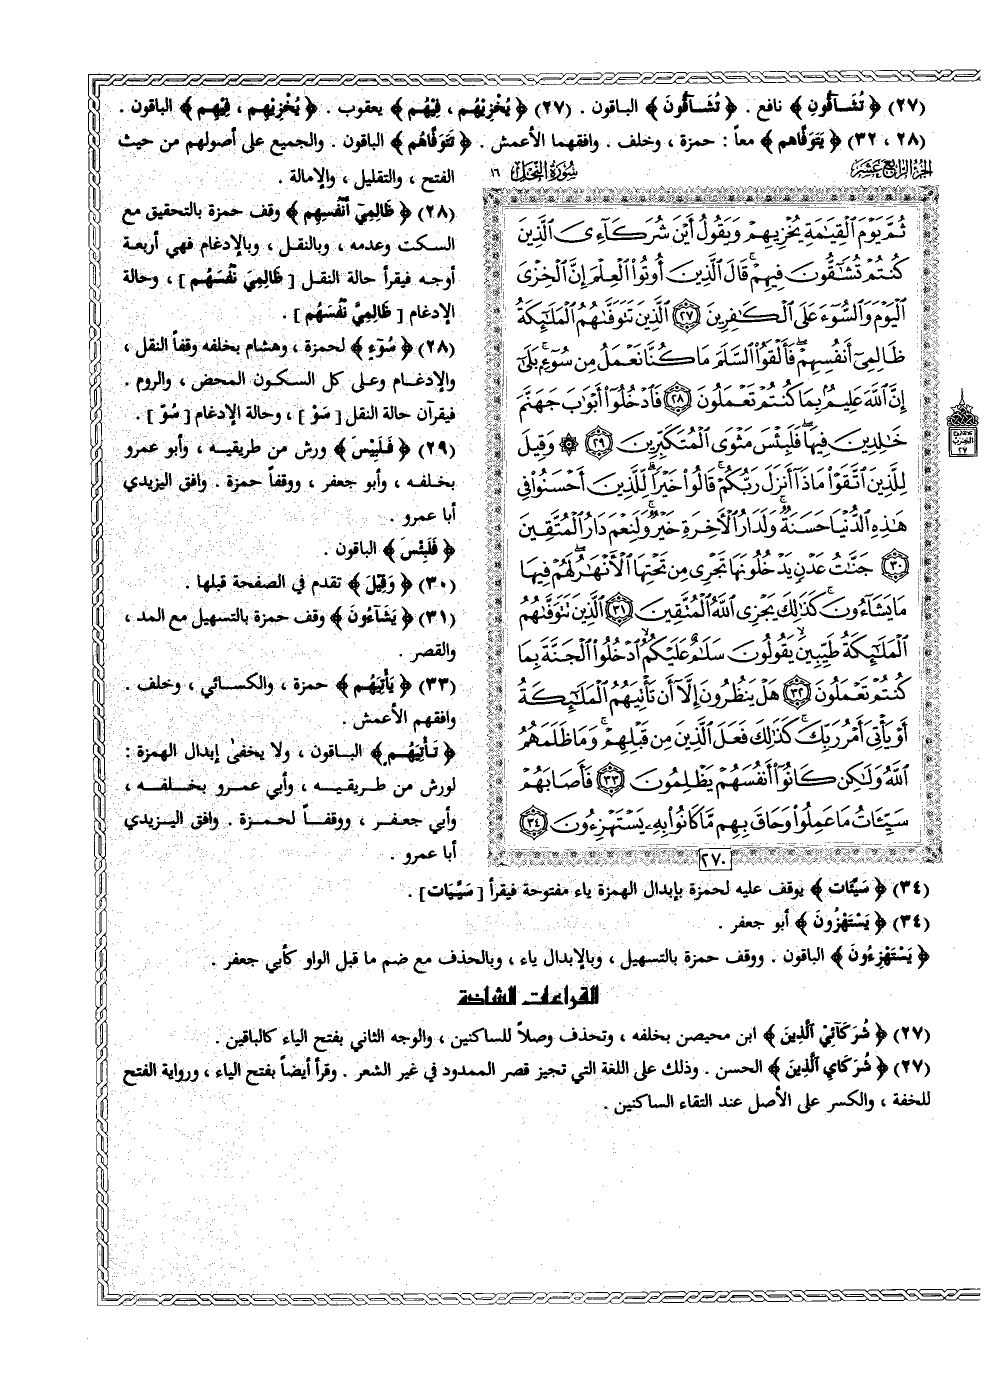 (٢٧) ﴿ تُشَاقُّونِ ﴾ نافع . ﴿ تُشَاقُّونَ ﴾ الباقون . (٢٧) ﴿ يُخْزِيهُم ، فِيهُم ﴾ يعقوب . ﴿ يُخْزِيهِم ، فِيهِم ﴾ الباقون .
(٢٨ ، ٣٢) ﴿ يَتَوَفَّاهم ﴾ معاً : حمزة ، وخلف . وافقهما الأعمش . ﴿ تَتَوَفَّاهُم ﴾ الباقون . والجميع على أصولهم من حيث
الفتح ، والتقليل ، والإمالة .
(٢٨) ﴿ ظَالِمِيّ أَنْفُسِهِم ﴾ وقف حمزة بالتحقيق مع
السكت وعدمه ، وبالنقل ، وبالإدغام فهي أربعة
أوجه فيقرأ حالة النقل [ ظَالِمِيَ نَفُسَهُم ] ، وحالة
الإدغام [ ظَالِمِيَّ نَفُسَهُم ] .
(٢٨) ﴿ سُوۤءٍ ﴾ لحمزة ، وهشام بخلفه وقفاً النقل ،
والإدغام وعلى كل السكون المحض ، والروم .
فيقرآن حالة النقل [ سَوْ ] ، وحالة الإدغام [ سُوّ ] .
(٢٩) ﴿ فَلَبِيْسَ ﴾ ورش من طريقيه ، وأبو عمرو
بخلفه ، وأبو جعفر ، ووقفاً حمزة . وافق اليزيدي
أبا عمرو .
﴿ فَلَبِئْسَ ﴾ الباقون .
(٣٠) ﴿ وَقِيْلَ ﴾ تقدم في الصفحة قبلها .
(٣١) ﴿ يَشَاءُونَ ﴾ وقف حمزة بالتسهيل مع المد ،
والقصر .
(٣٣) ﴿ يَأْتِيَهُم ﴾ حمزة ، والكسائي ، وخلف .
وافقهم الأعمش .
﴿ تَأْتِيَهُم ﴾ الباقون ، ولا يخفى إبدال الهمزة :
لورش من طريقيه ، وأبي عمرو بخلفه ،
وأبي جعفر ، ووقفاً لحمزة . وافق اليزيدي
أبا عمرو .
الجزء الرابع عشر
سورة النحل ١٦
ثُمَّ يَوْمَ ٱلْقِيَٰمَةِ يُخْزِيهِمْ وَيَقُولُ أَيْنَ شُرَكَآءِىَ ٱلَّذِينَ
كُنتُمْ تُشَٰٓقُّونَ فِيهِمْ ۚ قَالَ ٱلَّذِينَ أُوتُوا۟ ٱلْعِلْمَ إِنَّ ٱلْخِزْىَ
ٱلْيَوْمَ وَٱلسُّوٓءَ عَلَى ٱلْكَٰفِرِينَ ٢٧ ٱلَّذِينَ تَتَوَفَّىٰهُمُ ٱلْمَلَٰٓئِكَةُ
ظَالِمِىٓ أَنفُسِهِمْ ۖ فَأَلْقَوُا۟ ٱلسَّلَمَ مَا كُنَّا نَعْمَلُ مِن سُوٓءٍۭ ۚ بَلَىٰٓ
إِنَّ ٱللَّهَ عَلِيمٌۢ بِمَا كُنتُمْ تَعْمَلُونَ ٢٨ فَٱدْخُلُوٓا۟ أَبْوَٰبَ جَهَنَّمَ
خَٰلِدِينَ فِيهَا ۖ فَلَبِئْسَ مَثْوَى ٱلْمُتَكَبِّرِينَ ٢٩ ۞ وَقِيلَ
لِلَّذِينَ ٱتَّقَوْا۟ مَاذَآ أَنزَلَ رَبُّكُمْ ۚ قَالُوا۟ خَيْرًا ۗ لِّلَّذِينَ أَحْسَنُوا۟ فِى
هَٰذِهِ ٱلدُّنْيَا حَسَنَةٌ ۚ وَلَدَارُ ٱلْءَاخِرَةِ خَيْرٌ ۚ وَلَنِعْمَ دَارُ ٱلْمُتَّقِينَ
٣٠ جَنَّٰتُ عَدْنٍ يَدْخُلُونَهَا تَجْرِى مِن تَحْتِهَا ٱلْأَنْهَٰرُ ۖ لَهُمْ فِيهَا
مَا يَشَآءُونَ ۚ كَذَٰلِكَ يَجْزِى ٱللَّهُ ٱلْمُتَّقِينَ ٣١ ٱلَّذِينَ تَتَوَفَّىٰهُمُ
ٱلْمَلَٰٓئِكَةُ طَيِّبِينَ ۙ يَقُولُونَ سَلَٰمٌ عَلَيْكُمُ ٱدْخُلُوا۟ ٱلْجَنَّةَ بِمَا
كُنتُمْ تَعْمَلُونَ ٣٢ هَلْ يَنظُرُونَ إِلَّآ أَن تَأْتِيَهُمُ ٱلْمَلَٰٓئِكَةُ
أَوْ يَأْتِىَ أَمْرُ رَبِّكَ ۚ كَذَٰلِكَ فَعَلَ ٱلَّذِينَ مِن قَبْلِهِمْ ۚ وَمَا ظَلَمَهُمُ
ٱللَّهُ وَلَٰكِن كَانُوٓا۟ أَنفُسَهُمْ يَظْلِمُونَ ٣٣ فَأَصَابَهُمْ
سَيِّـَٔاتُ مَا عَمِلُوا۟ وَحَاقَ بِهِم مَّا كَانُوا۟ بِهِۦ يَسْتَهْزِءُونَ ٣٤
٢٧٠
الحزب
٢٧
(٣٤) ﴿ سَيِّئَات ﴾ يوقف عليه لحمزة بإبدال الهمزة ياء مفتوحة فيقرأ [ سَيِّيَات ] .
(٣٤) ﴿ يَسْتَهْزُونَ ﴾ أبو جعفر .
﴿ يَسْتَهْزِءُونَ ﴾ الباقون . ووقف حمزة بالتسهيل ، وبالإبدال ياء ، وبالحذف مع ضم ما قبل الواو كأبي جعفر .
القراءات الشاذة
(٢٧) ﴿ شُرَكَائِيْ الَّذِينَ ﴾ ابن محيصن بخلفه ، وتحذف وصلاً للساكنين ، والوجه الثاني بفتح الياء كالباقين .
(٢٧) ﴿ شُرَكَايِ الَّذِينَ ﴾ الحسن . وذلك على اللغة التي تجيز قصر الممدود في غير الشعر . وقرأ أيضاً بفتح الياء ، ورواية الفتح
للخفة ، والكسر على الأصل عند التقاء الساكنين .